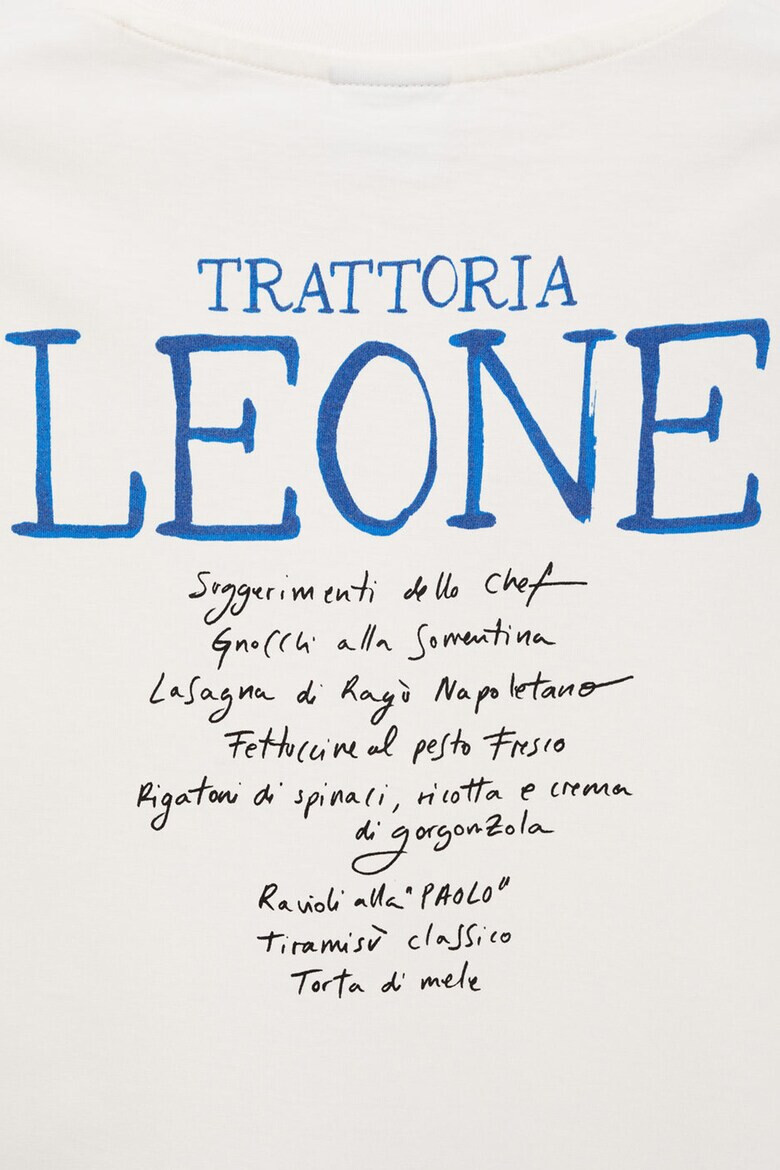 TRATTORIA
LEONE
Suggerimenti dello Chef
Gnocchi alla Sorrentina
Lasagna di Ragù Napoletano
Fettuccine al pesto Fresco
Rigatoni di spinaci, ricotta e crema
di gorgonzola
Ravioli alla "PAOLO"
Tiramisù classico
Torta di mele